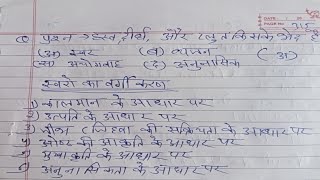 प्रश्न ह्रस्व, दीर्घ, और प्लुत किसके भेद है
(अ) स्वर (ब) व्यंजन (अ)
(स) अयोगवाह (द) अनुनासिक
स्वरो का वर्गीकरण
1) कालमान के आधार पर
2) उत्पति के आधार पर
3) जीभ (जिह्वा की सक्रियता के आधार पर
4) ओष्ठ की आकृति के आधार पर
5) मुखाकृति के आधार पर
6) अनुनासिकता के आधार पर